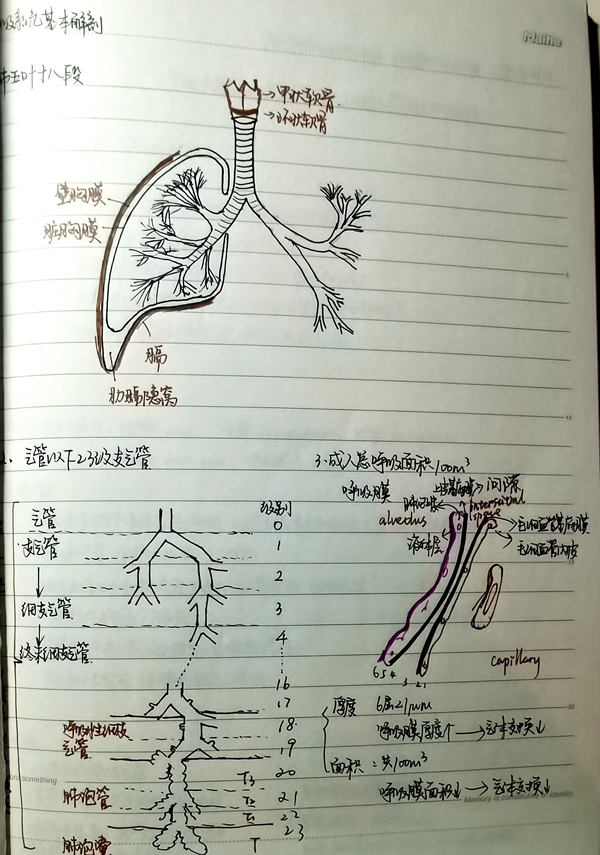 吸系统基本解剖
Maihe
肺五叶十八段
甲状软骨
环状软骨
壁胸膜
脏胸膜
膈
肋膈隐窝
气管以下23级支气管
3.成人总呼吸面积100m³
呼吸膜
间隙
interstitial space
alveolus
毛细血管基底膜
毛细血管内皮
capillary
6 5 4 3 2 1
气管
级别
0
支气管
1
2
细支气管
3
终末细支气管
4
16
17
呼吸性细支
气管
18
19
20
T3
肺泡管
21
T2
22
T1
肺泡囊
23
T
厚度 6层<1μm
呼吸膜厚度↑→气体交换↓
面积:共100m³
呼吸膜面积↓→气体交换↓